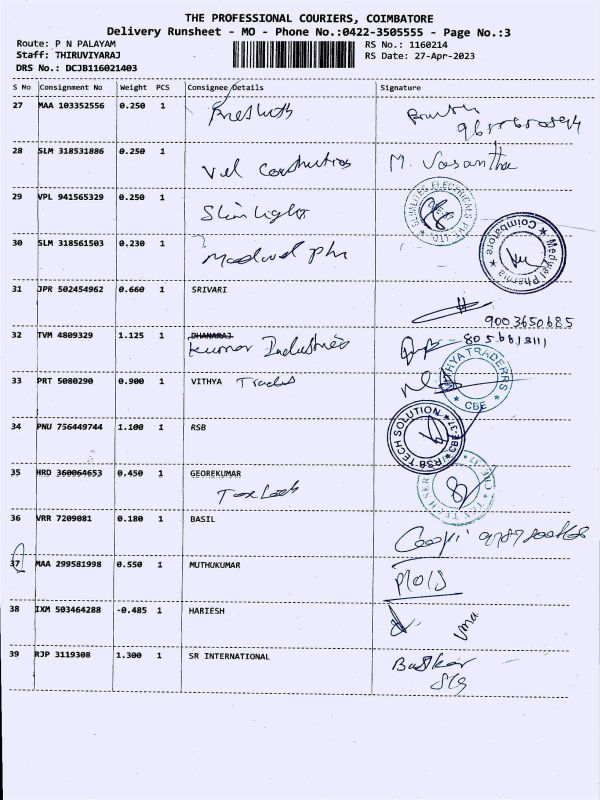 THE PROFESSIONAL COURIERS, COIMBATORE
Delivery Runsheet - MO - Phone No.:0422-3505555 - Page No.:3
Route: P N PALAYAM
RS No.: 1160214
Staff: THIRUVIYARAJ
RS Date: 27-Apr-2023
DRS No.: DCJB116021403
S No Consignment No Weight PCS Consignee Details Signature
27 MAA 103352556 0.250 1
28 SLM 318531886 0.250 1
Vel M. Vasantha
29 VPL 941565329 0.250 1
Slim lights
30 SLM 318561503 0.230 1
Coimbatore Medwel Pharma
31 JPR 502454962 0.660 1 SRIVARI
9003650685
32 TVM 4809329 1.125 1 DHANARAJ
Kumar Industries
33 PRT 5080290 0.900 1 VITHYA Trades
VITHYA TRADERRS CBE
34 PNU 756449744 1.100 1 RSB
RSB TECH SOLUTION CBE-37
35 HRD 360064653 0.450 1 GEOREKUMAR
36 VRR 7209081 0.180 1 BASIL
37 MAA 299581998 0.550 1 MUTHUKUMAR
38 IXM 503464288 -0.485 1 HARIESH
Uma
39 RJP 3119308 1.300 1 SR INTERNATIONAL
Baskar